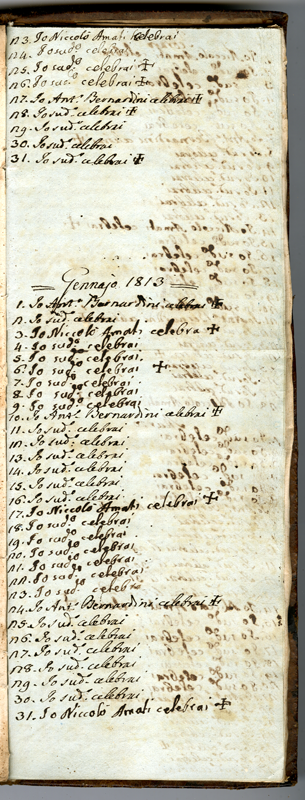 23. Io Niccolò Amati celebrai
24. Io sud.º celebrai
25. Io sud.º celebrai ✝
26. Io sud.º celebrai ✝
27. Io Ant.º Bernardini celebrai ✝
28. Io sud.º celebrai ✝
29. Io sud.º celebrai
30. Io sud.º celebrai
31. Io sud.º celebrai ✝
Gennajo 1813
1. Io Ant.º Bernardini celebrai ✝
2. Io sud.º celebrai
3. Io Niccolò Amati celebra ✝
4. Io sud.º celebrai
5. Io sud.º celebrai
6. Io sud.º celebrai ✝
7. Io sud.º celebrai
8. Io sud.º celebrai
9. Io sud.º celebrai
10. Io Ant.º Bernardini celebrai ✝
11. Io sud.º celebrai
12. Io sud.º celebrai
13. Io sud.º celebrai
14. Io sud.º celebrai
15. Io sud.º celebrai
16. Io sud.º celebrai
17. Io Niccolò Amati celebrai ✝
18. Io sud.º celebrai
19. Io sud.º celebrai
20. Io sud.º celebrai
21. Io sud.º celebrai
22. Io sud.º celebrai
23. Io sud.º celebra
24. Io Ant.º Bernardini celebrai ✝
25. Io sud.º celebrai
26. Io sud.º celebrai
27. Io sud.º celebrai
28. Io sud.º celebrai
29. Io sud.º celebrai
30. Io sud.º celebrai
31. Io Niccolò Amati celebrai ✝